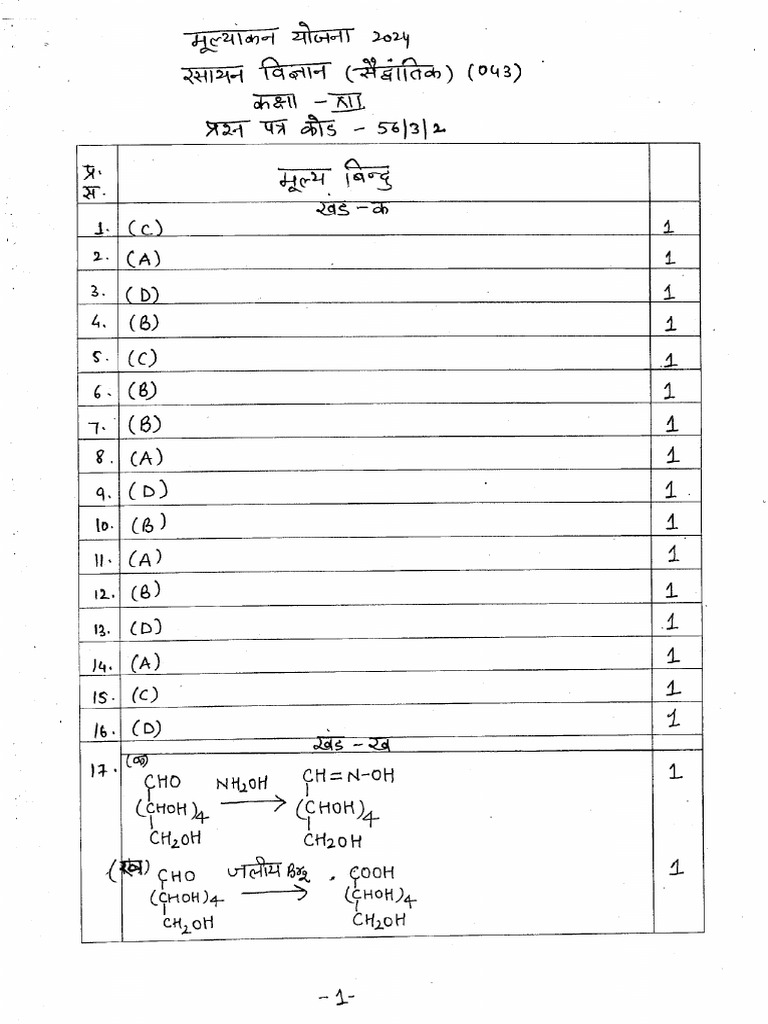 मूल्यांकन योजना 2024
रसायन विज्ञान (सैद्धांतिक) (043)
कक्षा - XII
प्रश्न पत्र कोड - 56/3/2
प्र. स. मूल्य बिन्दु
खंड - क
1. (C) 1
2. (A) 1
3. (D) 1
4. (B) 1
5. (C) 1
6. (B) 1
7. (B) 1
8. (A) 1
9. (D) 1
10. (B) 1
11. (A) 1
12. (B) 1
13. (D) 1
14. (A) 1
15. (C) 1
16. (D) 1
खंड - ख
17. (क) 1
CHO NH2OH CH=N-OH
(CHOH)4 → (CHOH)4
CH2OH CH2OH
(ख) CHO जलीय Br2 COOH 1
(CHOH)4 → (CHOH)4
CH2OH CH2OH
-1-